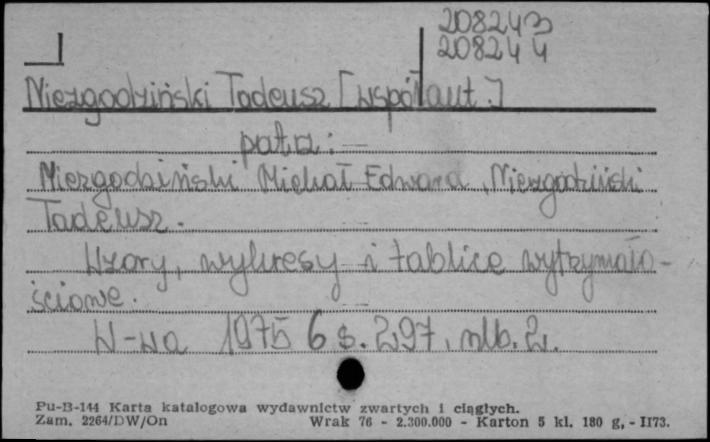 208243
208244
Niezgodziński Tadeusz [współaut.]
patrz:
Niezgodziński Michał Edward, Niezgodziński
Tadeusz.
Wzory, wykresy i tablice wytrzymało-
ściowe.
W-wa 1975 6 s. 297, nlb. 2.
Pu-B-144 Karta katalogowa wydawnictw zwartych i ciągłych.
Zam. 2264/DW/On Wrak 76 - 2.300.000 - Karton 5 kl. 180 g, - II73.